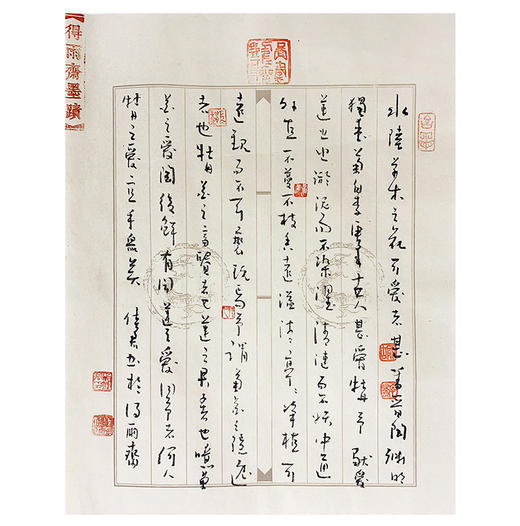 水陸草木之花可愛者甚蕃晉陶淵明
獨愛菊自李唐來世人甚愛牡丹予獨愛
蓮之出淤泥而不染濯清漣而不妖中通
外直不蔓不枝香遠溢清亭亭淨植可
遠觀而不可褻玩焉予謂菊花之隱逸
者也牡丹花之富貴者也蓮之君子也噫菊
花之愛陶後鮮有聞蓮之愛同予者何人
牡丹之愛宜乎眾矣 書於得雨齋
得雨齋墨蹟